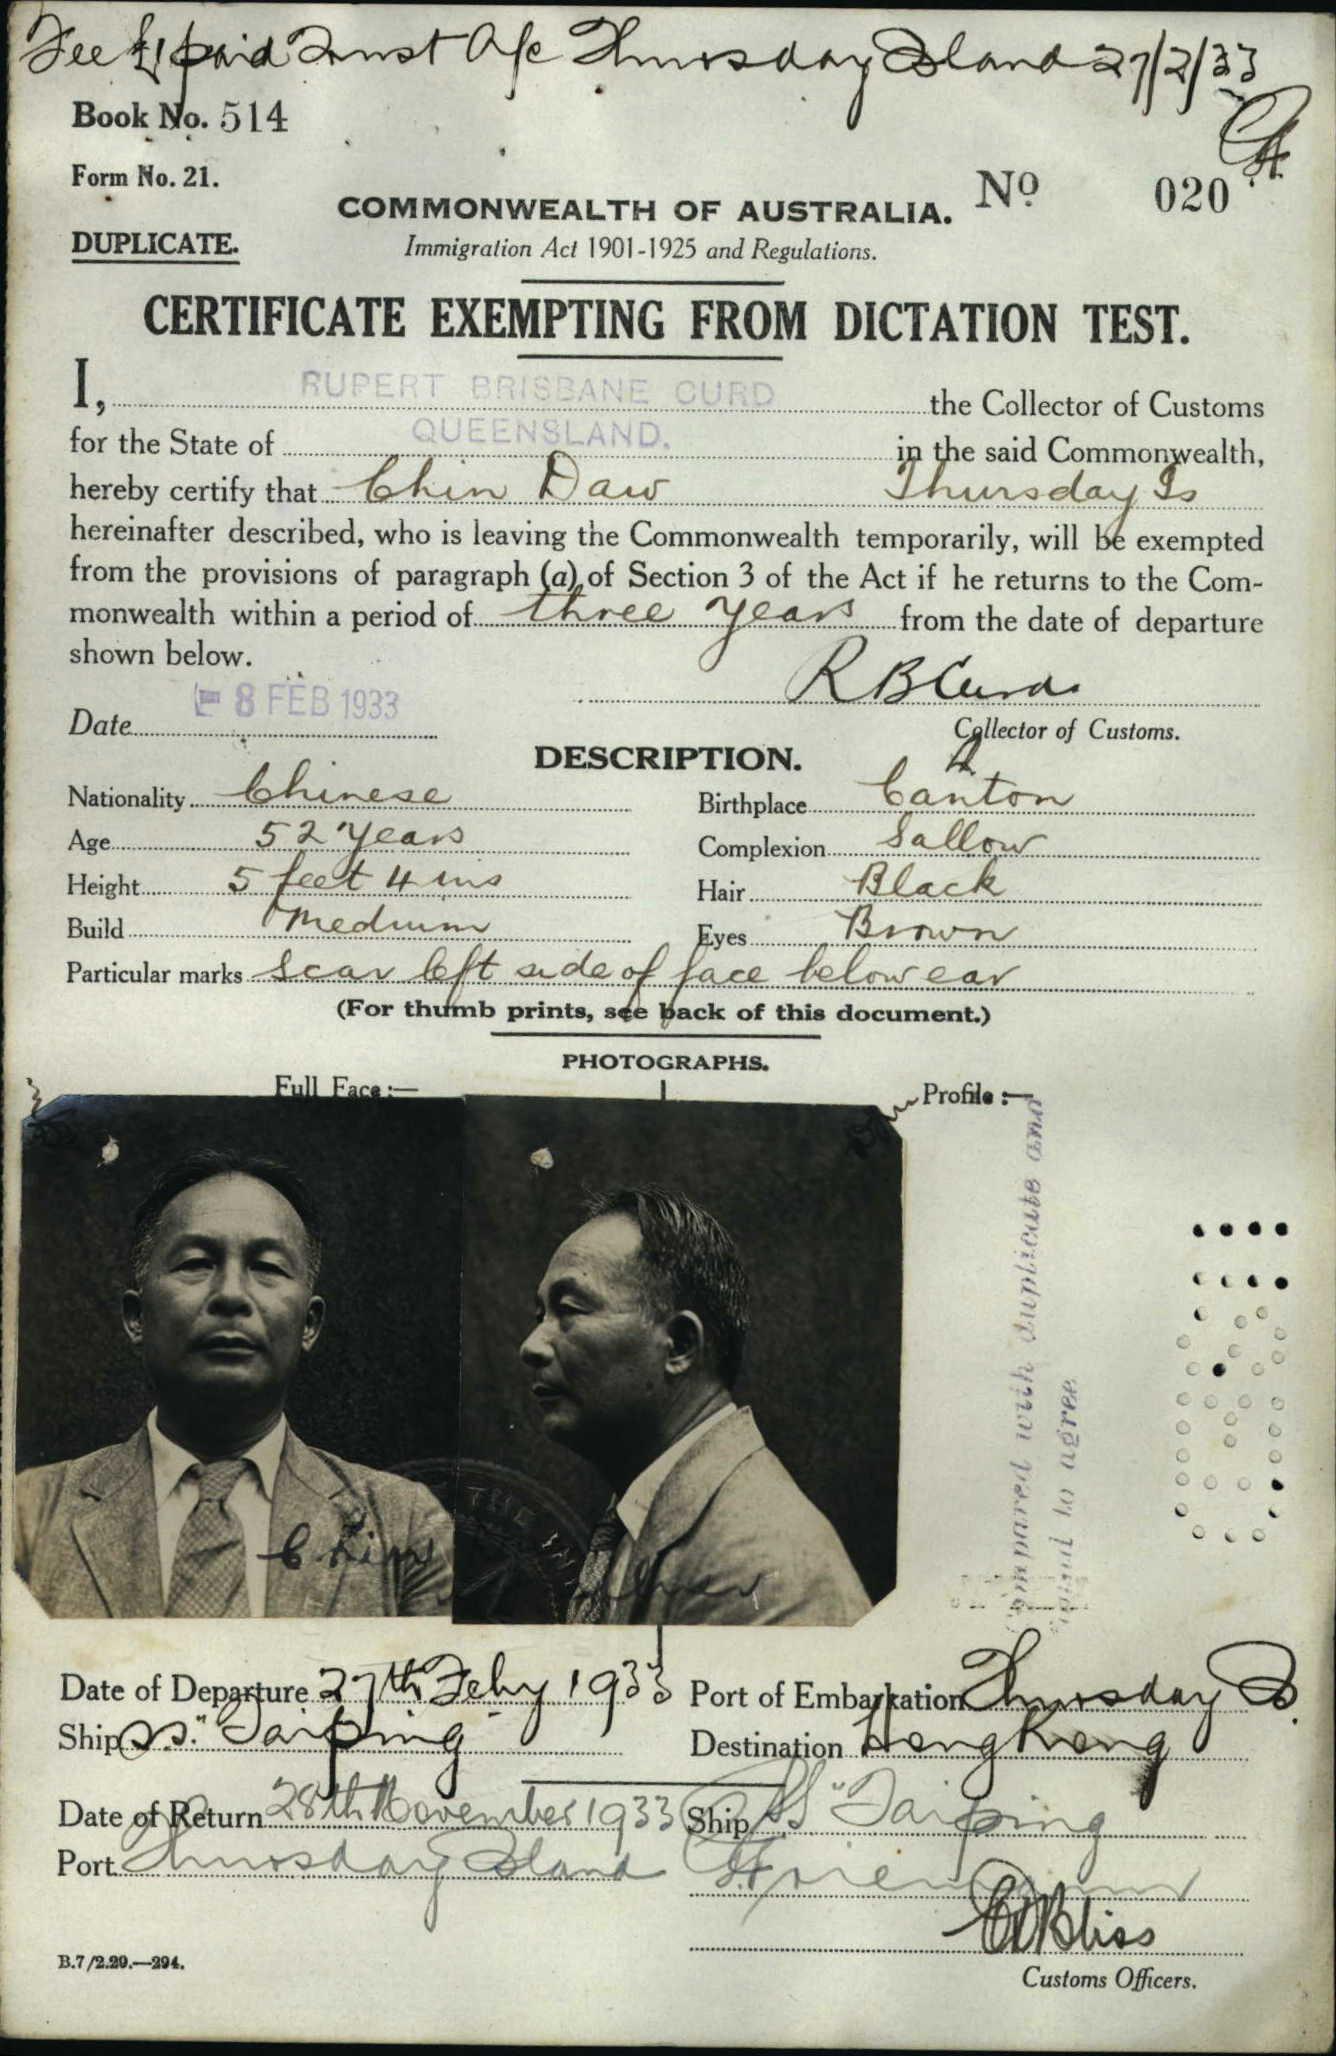 Fee £1 paid Trust A/c Thursday Island 27/2/33
Book No. 514
Form No. 21.
No 020
COMMONWEALTH OF AUSTRALIA.
DUPLICATE.
Immigration Act 1901-1925 and Regulations.
CERTIFICATE EXEMPTING FROM DICTATION TEST.
I, RUPERT BRISBANE CURD the Collector of Customs
for the State of QUEENSLAND. in the said Commonwealth,
hereby certify that Chin Daw Thursday Is
hereinafter described, who is leaving the Commonwealth temporarily, will be exempted
from the provisions of paragraph (a) of Section 3 of the Act if he returns to the Com-
monwealth within a period of three years from the date of departure
shown below.
R B Curd
Date 8 FEB 1933
Collector of Customs.
DESCRIPTION.
Nationality Chinese Birthplace Canton
Age 52 Years Complexion Sallow
Height 5 feet 4 ins Hair Black
Build Medium Eyes Brown
Particular marks Scar left side of face below ear
(For thumb prints, see back of this document.)
PHOTOGRAPHS.
Full Face:— Profile:—
Compared with duplicate and
found to agree
THE
Date of Departure 27th Feby 1933 Port of Embarkation Thursday Is.
Ship S.S. "Taiping" Destination Hong Kong
Date of Return 28th November 1933 Ship SS "Taiping
Port Thursday Island
Bliss
B.7/2.29.—294.
Customs Officers.